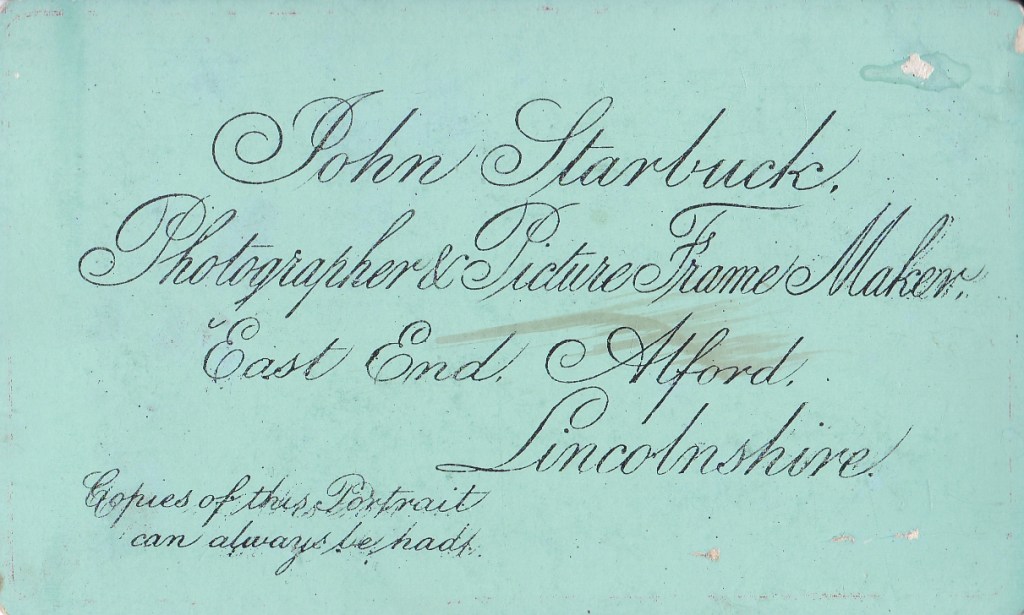 John Starbuck.
Photographer & Picture Frame Maker.
East End. Alford.
Lincolnshire.
Copies of this Portrait
can always be had.